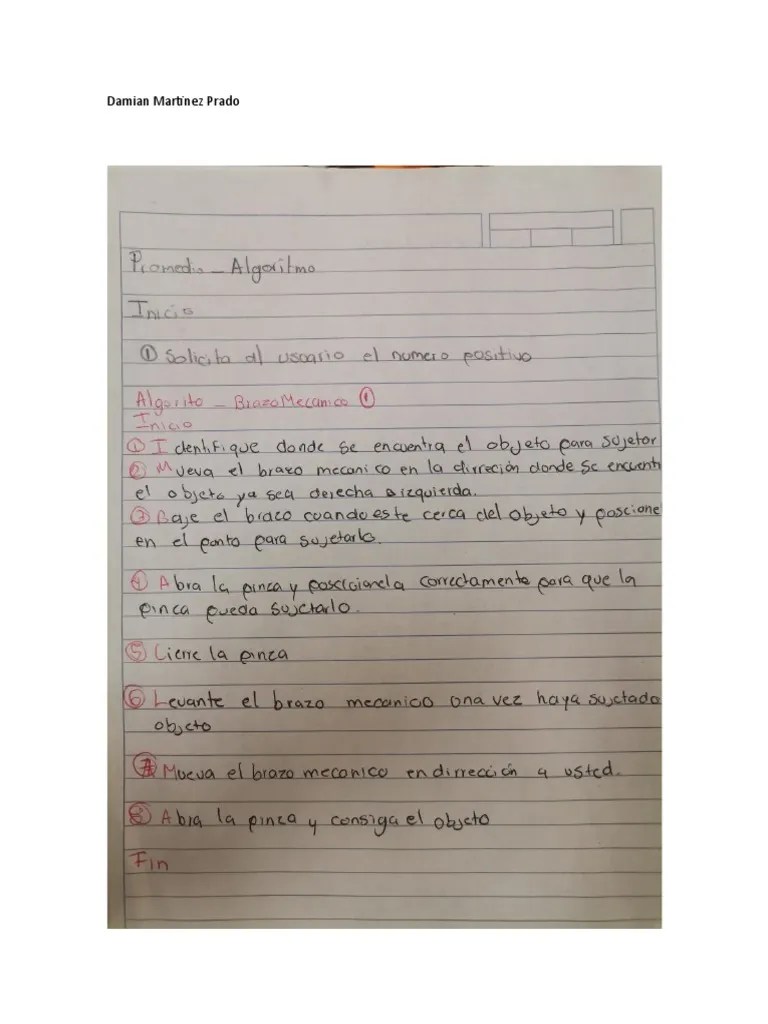 Damian Martínez Prado
Promedio - Algoritmo
Inicio
① Solicita al usuario el numero positivo
Algorito - BrazoMecanico ①
Inicio
① Identifique donde se encuentra el objeto para sujetor
② Mueva el brazo mecanico en la dirreción donde se encuent
el objeto ya sea derecha o izquierda.
③ Baje el braco cuando este cerca del objeto y poscione
en el ponto para sujetarlo.
④ Abra la pinca y posicionela correctamente para que la
pinca pueda sujetarlo.
⑤ Cierre la pinza
⑥ Levante el brazo mecanico ona vez haya sujetado
objeto
⑦ Mueva el brazo mecanico en dirrección a usted.
⑧ Abra la pinza y consiga el objeto
Fin